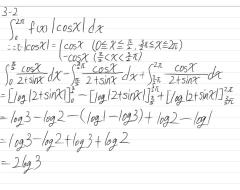 3-2
∫₀^{2π} f(x)|cosx|dx
∴|cosx| = { cosx (0≦x≦π/2, 3/2π≦x≦2π)
-cosx (π/2<x<3/2π)
∫₀^{π/2} cosx/(2+sinx) dx - ∫_{π/2}^{3/2π} cosx/(2+sinx) dx + ∫_{3/2π}^{2π} cosx/(2+sinx) dx
= [log|2+sinx|]₀^{π/2} - [log|2+sinx|]_{π/2}^{3/2π} + [log|2+sinx|]_{3/2π}^{2π}
= log3 - log2 - (log1 - log3) + log2 - log1
= log3 - log2 + log3 + log2
= 2log3